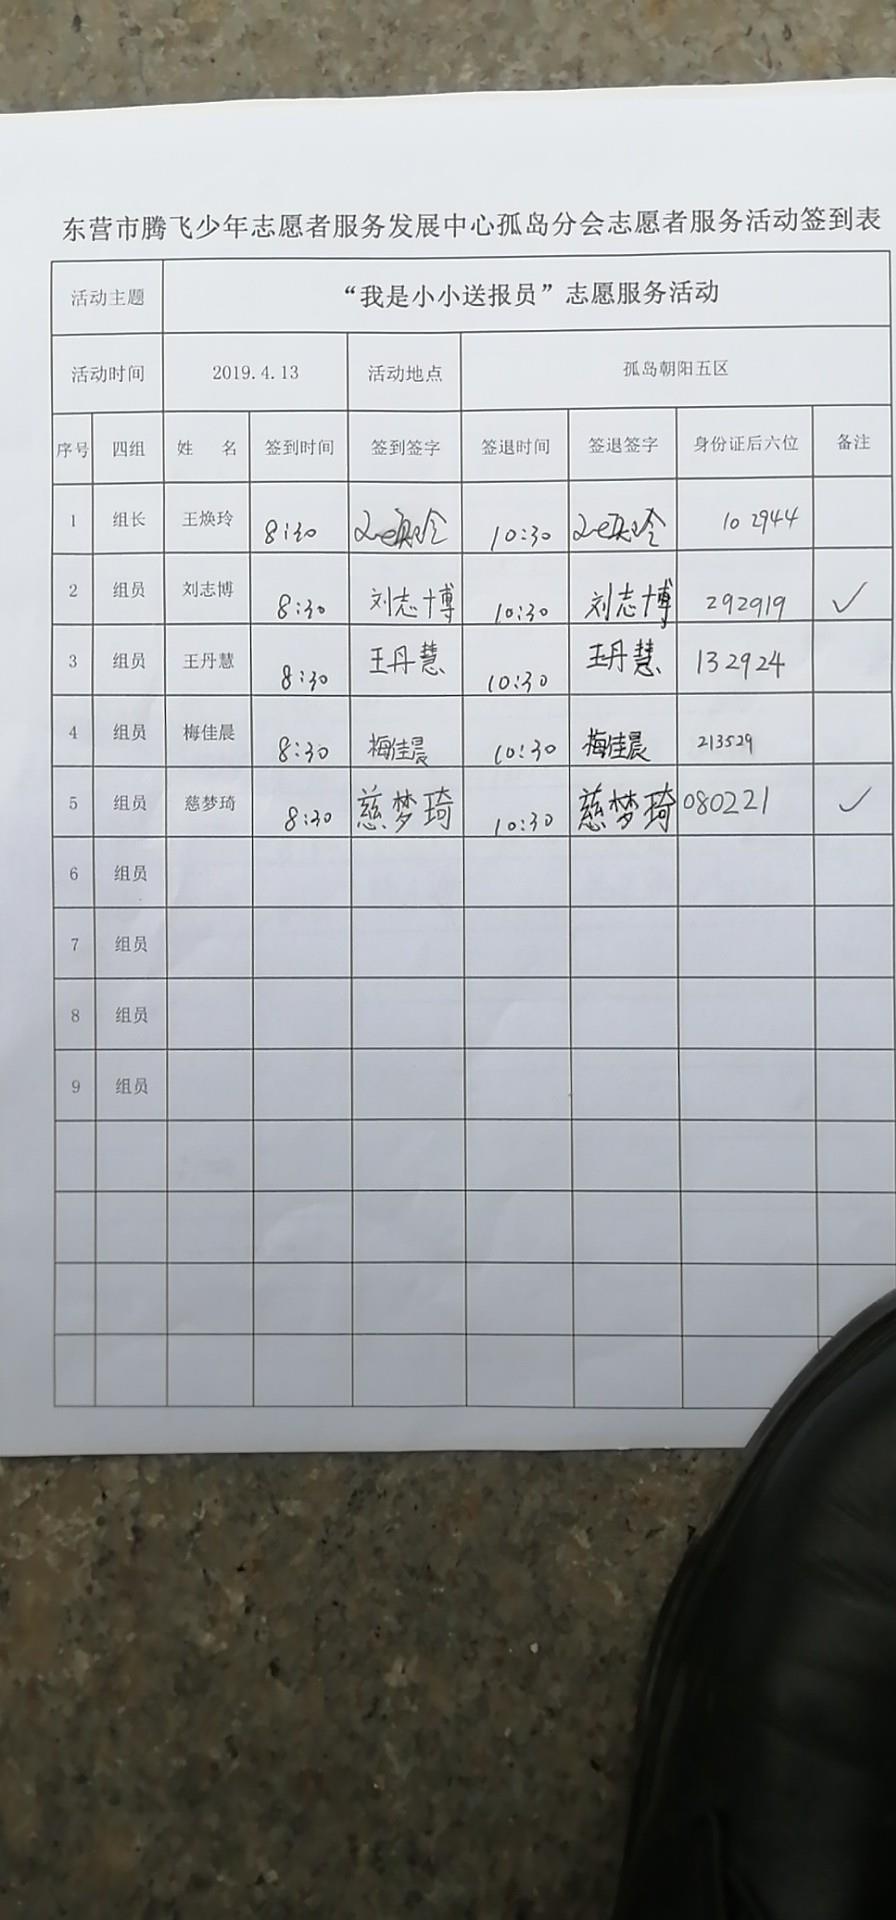 东营市腾飞少年志愿者服务发展中心孤岛分会志愿者服务活动签到表
活动主题 “我是小小送报员”志愿服务活动
活动时间 2019.4.13 活动地点 孤岛朝阳五区
序号 四组 姓 名 签到时间 签到签字 签退时间 签退签字 身份证后六位 备注
1 组长 王焕玲 8:30 王焕玲 10:30 王焕玲 102944
2 组员 刘志博 8:30 刘志博 10:30 刘志博 292919 ✓
3 组员 王丹慧 8:30 王丹慧 10:30 王丹慧 132924
4 组员 梅佳晨 8:30 梅佳晨 10:30 梅佳晨 213529
5 组员 慈梦琦 8:30 慈梦琦 10:30 慈梦琦 080221 ✓
6 组员
7 组员
8 组员
9 组员